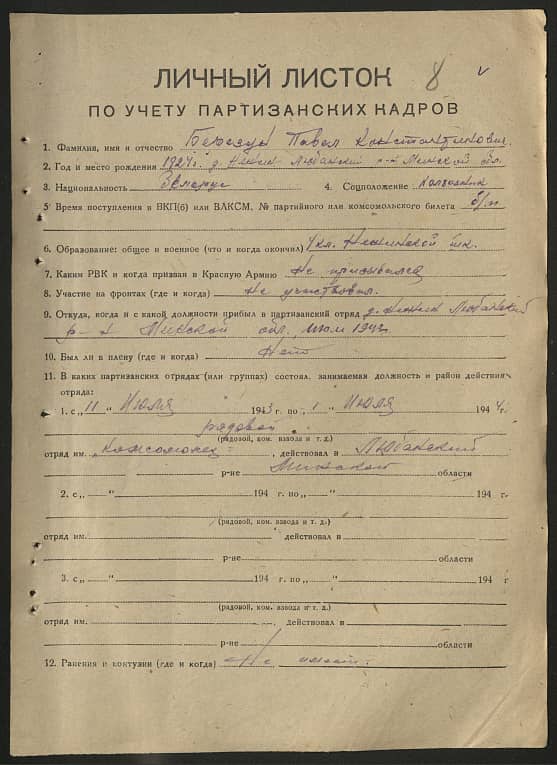 8 v
ЛИЧНЫЙ ЛИСТОК
ПО УЧЕТУ ПАРТИЗАНСКИХ КАДРОВ
1. Фамилия, имя и отчество Павел Константинович
2. Год и место рождения 1924 г. д. Нежин Любанский р-н Минской обл.
3. Национальность Беларус 4. Соцположение Колхозник
5 Время поступления в ВКП(б) или ВЛКСМ, № партийного или комсомольского билета б/п
6. Образование: общее и военное (что и когда окончил) кл. Нежинской шк.
7. Каким РВК и когда призван в Красную Армию Не призывался
8. Участие на фронтах (где и когда) Не участвовал.
9. Откуда, когда и с какой должности прибыл в партизанский отряд д. Нежин Любанский
р-н Минской обл., 1943
10. Был ли в плену (где и когда) Нет
11. В каких партизанских отрядах (или группах) состоял, занимаемая должность и район действия
отряда:
1. с „11 " Июля 1943 г. по „1 " Июля 1944 г.
рядовой
(рядовой, ком. взвода и т. д.)
отряд им. „Комсомолец" действовал в Любанский
р-не Минской области
2. с „ " 194 г. по „ " 194 г.
(рядовой, ком. взвода и т. д.)
отряд им. действовал в
р-не области
3. с „ " 194 г. по „ " 194 г
(рядовой, ком. взвода и т. д.)
отряд им. действовал в
р-не области
12. Ранения и контузии (где и когда) Не имеет.